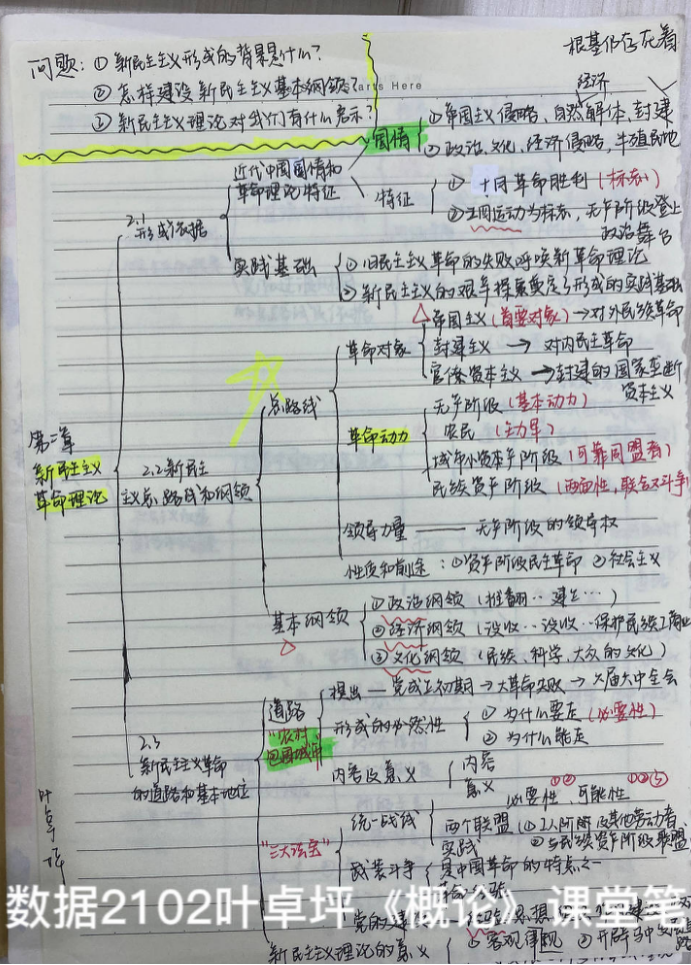 根基仍存在着
问题：① 新民主主义形成的背景是什么？
② 怎样建设新民主主义基本纲领？
arts Here
③ 新民主主义理论对我们有什么启示？
经济
第二章
新民主主义
革命理论
2.1
形成依据
近代中国国情和
革命理论特征
国情
① 帝国主义侵略，自然解体，封建
② 政治、文化、经济侵略，半殖民地
特征
① 十月革命胜利（标志）
② 五四运动为标志，无产阶级登上
政治舞台
实践基础
① 旧民主主义革命的失败呼唤新革命理论
② 新民主主义的艰辛探索奠定了形成的实践基础
2.2 新民主
主义总路线和纲领
总路线
革命对象
帝国主义（首要对象）→对外民族革命
封建主义 → 对内民主革命
官僚资本主义 →封建的国家垄断
资本主义
革命动力
无产阶级（基本动力）
农民（主力军）
城市小资产阶级（可靠同盟者）
民族资产阶级（两面性，联合又斗争）
领导力量 —— 无产阶级的领导权
性质和前途：①资产阶级民主革命 ②社会主义
基本纲领
①政治纲领（推翻‥建立…）
②经济纲领（没收‥没收‥保护民族工商业
③文化纲领（民族、科学、大众的文化）
2.3
新民主主义革命
的道路和基本地位
道路
"农村
包围城市
提出 — 党成立初期→大革命失败→六届六中全会
形成的必然性
① 为什么要走（必要性）
② 为什么能走
内容及意义
内容
意义
"三大法宝"
统一战线
必要性、可能性
①②
①②③
两个联盟
① 工人阶级及其他劳动者
② 与民族资产阶级联盟
实践
武装斗争
是中国革命的特点之一
党的建设
新民主主义理论的意义
① 客观律规
叶卓坪
数据2102叶卓坪《概论》课堂笔